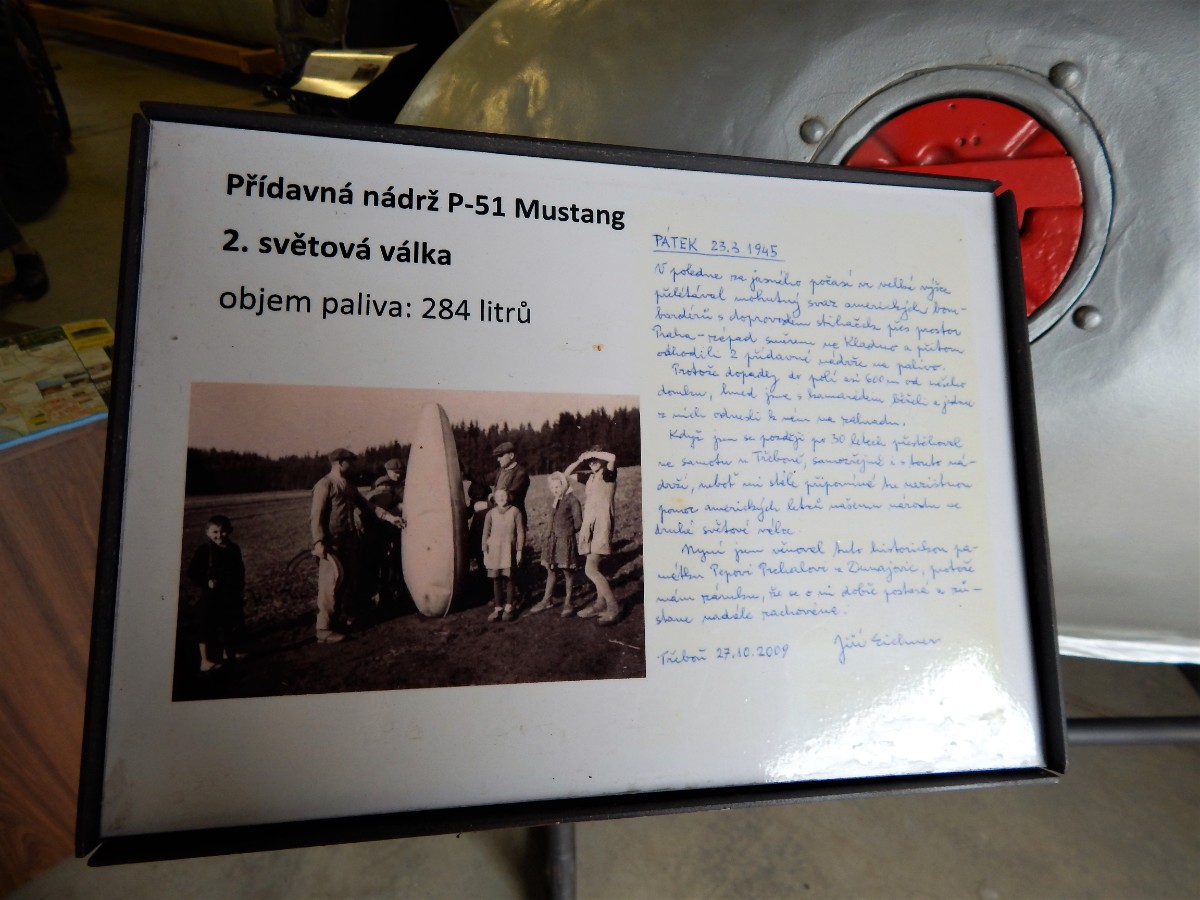 Přídavná nádrž P-51 Mustang
2. světová válka
objem paliva: 284 litrů
PÁTEK 23.3 1945
V poledne za jasného počasí ve velké výšce
přelétával mohutný svaz amerických bom-
bardérů s doprovodem stíhaček přes prostor
Praha-západ směrem na Kladno a přitom
odhodili 2 přídavné nádrže na palivo.
Protože dopadly do polí asi 600 m od našeho
domku, hned jsme s kamarádem běželi a jednu
z nich odnesli k nám na zahradu.
Když jsem se později po 30 letech přestěhoval
na samotu u Třeboně, samozřejmě i s touto ná-
drží, neboť mi stále připomíná tu
pomoc amerických letců našemu národu ve
druhé světové válce.
Nyní jsem věnoval tuto historickou pa-
mátku Pepovi z Dunajovic, protože
mám záruku, že se o ni dobře postará a zů-
stane nadále zachována.
Třeboň 27.10.2009 Jiří Eichner